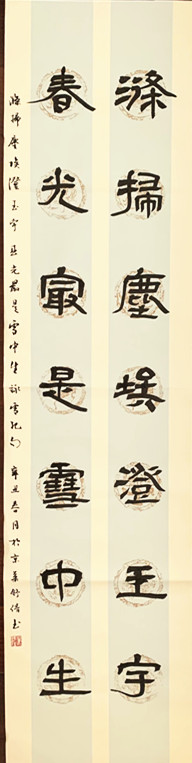 滌掃塵埃澄玉宇
春光㝡是雪中生
滌掃塵埃澄玉宇 春光最是雪中生 詠雪句 辛丑春月於京華